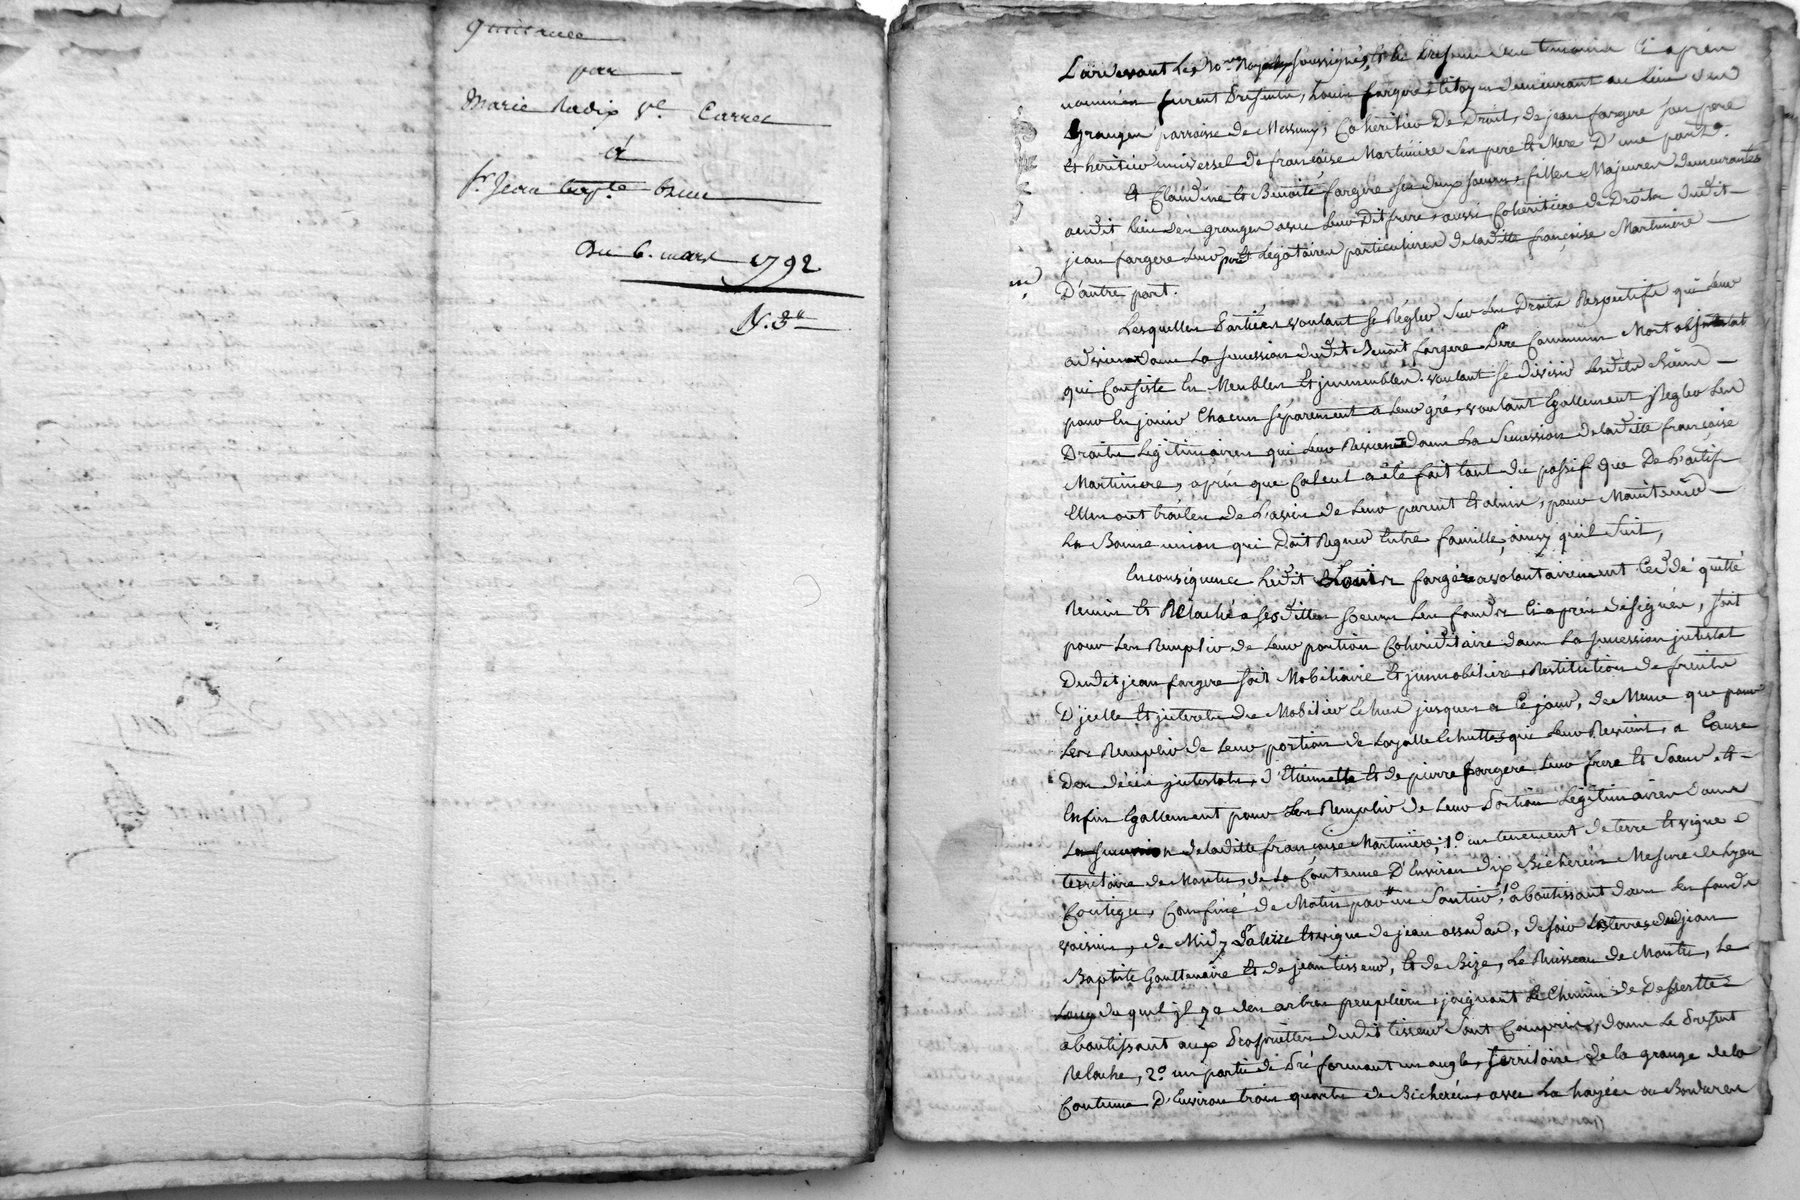 quittance
par
Marie Radix Ve. Carret
à
sr. Jean bapte.
Du 6. mars 1792
N. 3
Pardevant les No.res Royaux soussignés, et en presence des temoins ci après
nommés furent Presents, Louis fargere citoyen demeurant au lieu des
granges parroisse de Messimy, Coheritier De Droit, de jean fargere son pere
et heritier universel de françoise Martiniere ses pere et Mere D'une part.
Et Claudine et Benoite fargere ses deux soeurs, filles Majeures demeurantes
audit lieu des granges avec leur Dit frere, aussi Coheritiere de Droits dudit
jean fargere leur pere et Légataires particulieres de laditte françoise Martiniere
D'autre part.
Lesquelles Parties voulant se Régler sur les Droits Respectifs qui leur
dans La succession dudit Benoit fargere Pere Commun Mort abjntestat
qui Consiste en Meubles et jmmeubles. voulant se diviser Lesdits Biens
pour en jouir Chacun séparement a leur gré, voulant Egallement Regler les
Droits Légitimaires qui leur Revient dans La Succession de laditte françoise
Martiniere, après que Calcul a été fait tant du passif que De L'actif
Elles ont traitées de L'avis de leur parent et amis, pour Maintenir
La Bonne union qui Doit Regner Entre famille, ainsy quil suit,
En conséquence Ledit Louis fargère a volontairement Ceddé quitté
Remis et Relaché a ses dittes soeurs Les fonds ci après désignés, soit
pour Les Remplir de leur portion Cohériditaire dans La succession jntestat
Dudit jean fargere soit Mobiliaire et jmmobiliaire, Restitution de fruits
D'jcelle et jnterets du Mobilier échus jusques a Ce jour, de Meme que pour
Les Remplir de leur portion de Loyalle Echutte qui leur Revient, a Cause
Des décès jntestats, d'Etiennette et de pierre fargere leur frere et Soeur, et
Enfin Egallement pour Les Remplir de leur Portion Légitimaires dans
La succession de laditte françoise Martiniere; 1o. un tenement de terre et vigne
territoire de de La Contenue D'Environ dix Bicherées Mesure de Lyon
Contigu, Confiné de Matin par un Sentier, aboutissant dans les fonds
voisins, de Midy et vigne de jean de soir Les terres de jean
Baptiste et de jean tisseur, et de Bize, Le Ruisseau de Le
Long du quel jl y a des arbres peupliers, joignant Le Chemin de Desserte
aboutissant aux Proprietés dudit tisseur sont Compris, dans Le Present
Relache, 2o. un partie de Pré formant un angle, Territoire de la grange de la
Contenue D'Environ trois quarts de Bicherée, avec La hayes ou